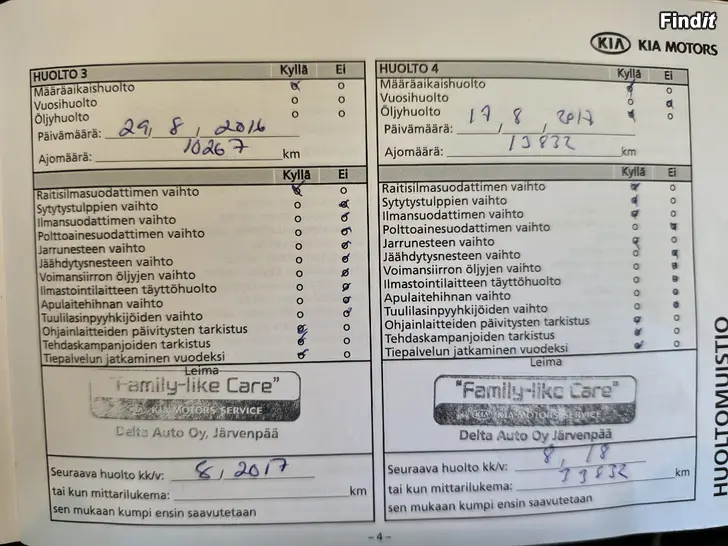 Findit
KIA KIA MOTORS
HUOLTO 3 Kyllä Ei
Määräaikaishuolto
Vuosihuolto
Öljyhuolto
Päivämäärä: 29, 8, 2016
Ajomäärä: 10267 km
Kyllä Ei
Raitisilmasuodattimen vaihto
Sytytystulppien vaihto
Ilmansuodattimen vaihto
Polttoainesuodattimen vaihto
Jarrunesteen vaihto
Jäähdytysnesteen vaihto
Voimansiirron öljyjen vaihto
Ilmastointilaitteen täyttöhuolto
Apulaitehihnan vaihto
Tuulilasinpyyhkijöiden vaihto
Ohjainlaitteiden päivitysten tarkistus
Tehdaskampanjoiden tarkistus
Tiepalvelun jatkaminen vuodeksi
Leima
"Family-like Care"
KIA KIA MOTORS SERVICE
Delta Auto Oy, Järvenpää
Seuraava huolto kk/v: 8, 2017
tai kun mittarilukema: km
sen mukaan kumpi ensin saavutetaan
HUOLTO 4 Kyllä Ei
Määräaikaishuolto
Vuosihuolto
Öljyhuolto
Päivämäärä: 17 / 8 / 2017
Ajomäärä: 13832 km
Kyllä Ei
Raitisilmasuodattimen vaihto
Sytytystulppien vaihto
Ilmansuodattimen vaihto
Polttoainesuodattimen vaihto
Jarrunesteen vaihto
Jäähdytysnesteen vaihto
Voimansiirron öljyjen vaihto
Ilmastointilaitteen täyttöhuolto
Apulaitehihnan vaihto
Tuulilasinpyyhkijöiden vaihto
Ohjainlaitteiden päivitysten tarkistus
Tehdaskampanjoiden tarkistus
Tiepalvelun jatkaminen vuodeksi
Leima
"Family-like Care"
KIA KIA MOTORS SERVICE
Delta Auto Oy, Järvenpää
Seuraava huolto kk/v: 8, 18
tai kun mittarilukema: 33832 km
sen mukaan kumpi ensin saavutetaan
- 4 -
HUOLTOMUISTIO